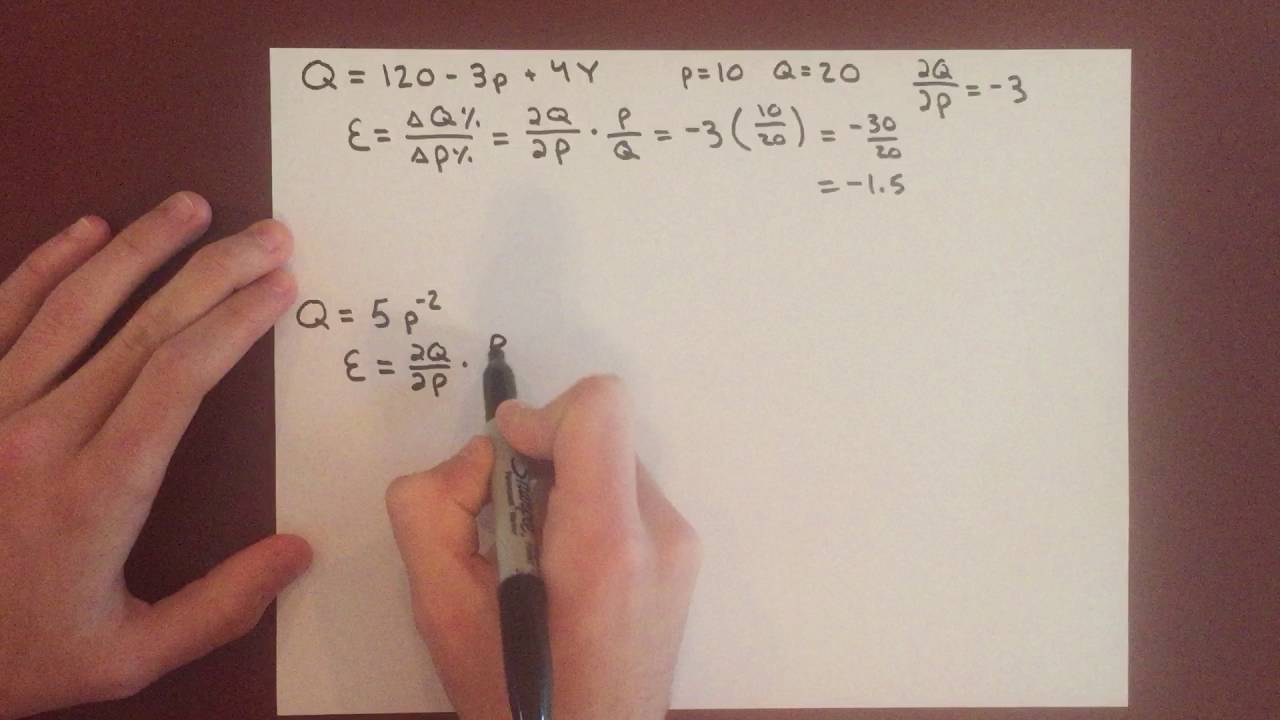 Q = 120 - 3p + 4Y p=10 Q=20 ∂Q/∂P = -3
ε = ΔQ%/ΔP% = ∂Q/∂P · P/Q = -3 (10/20) = -30/20
= -1.5
Q = 5 p^-2
ε = ∂Q/∂P · P
Sharpie